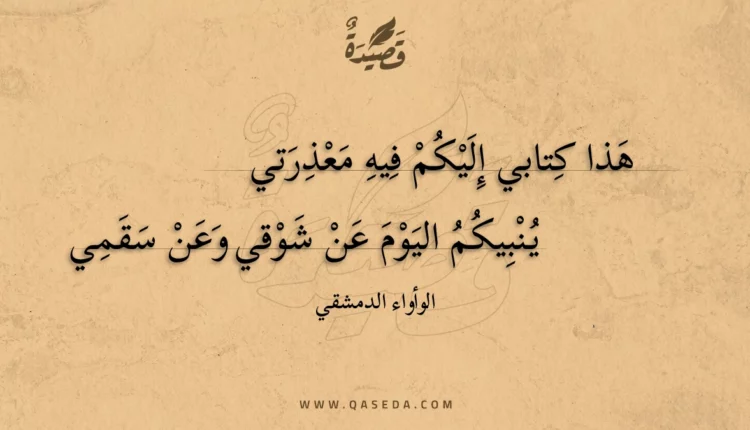 قَصِيدَةٌ
هَذا كِتابي إِلَيْكُمْ فِيهِ مَعْذِرَتي
يُنْبِيكُمُ اليَوْمَ عَنْ شَوْقي وَعَنْ سَقَمِي
الوأواء الدمشقي
WWW.QASEDA.COM